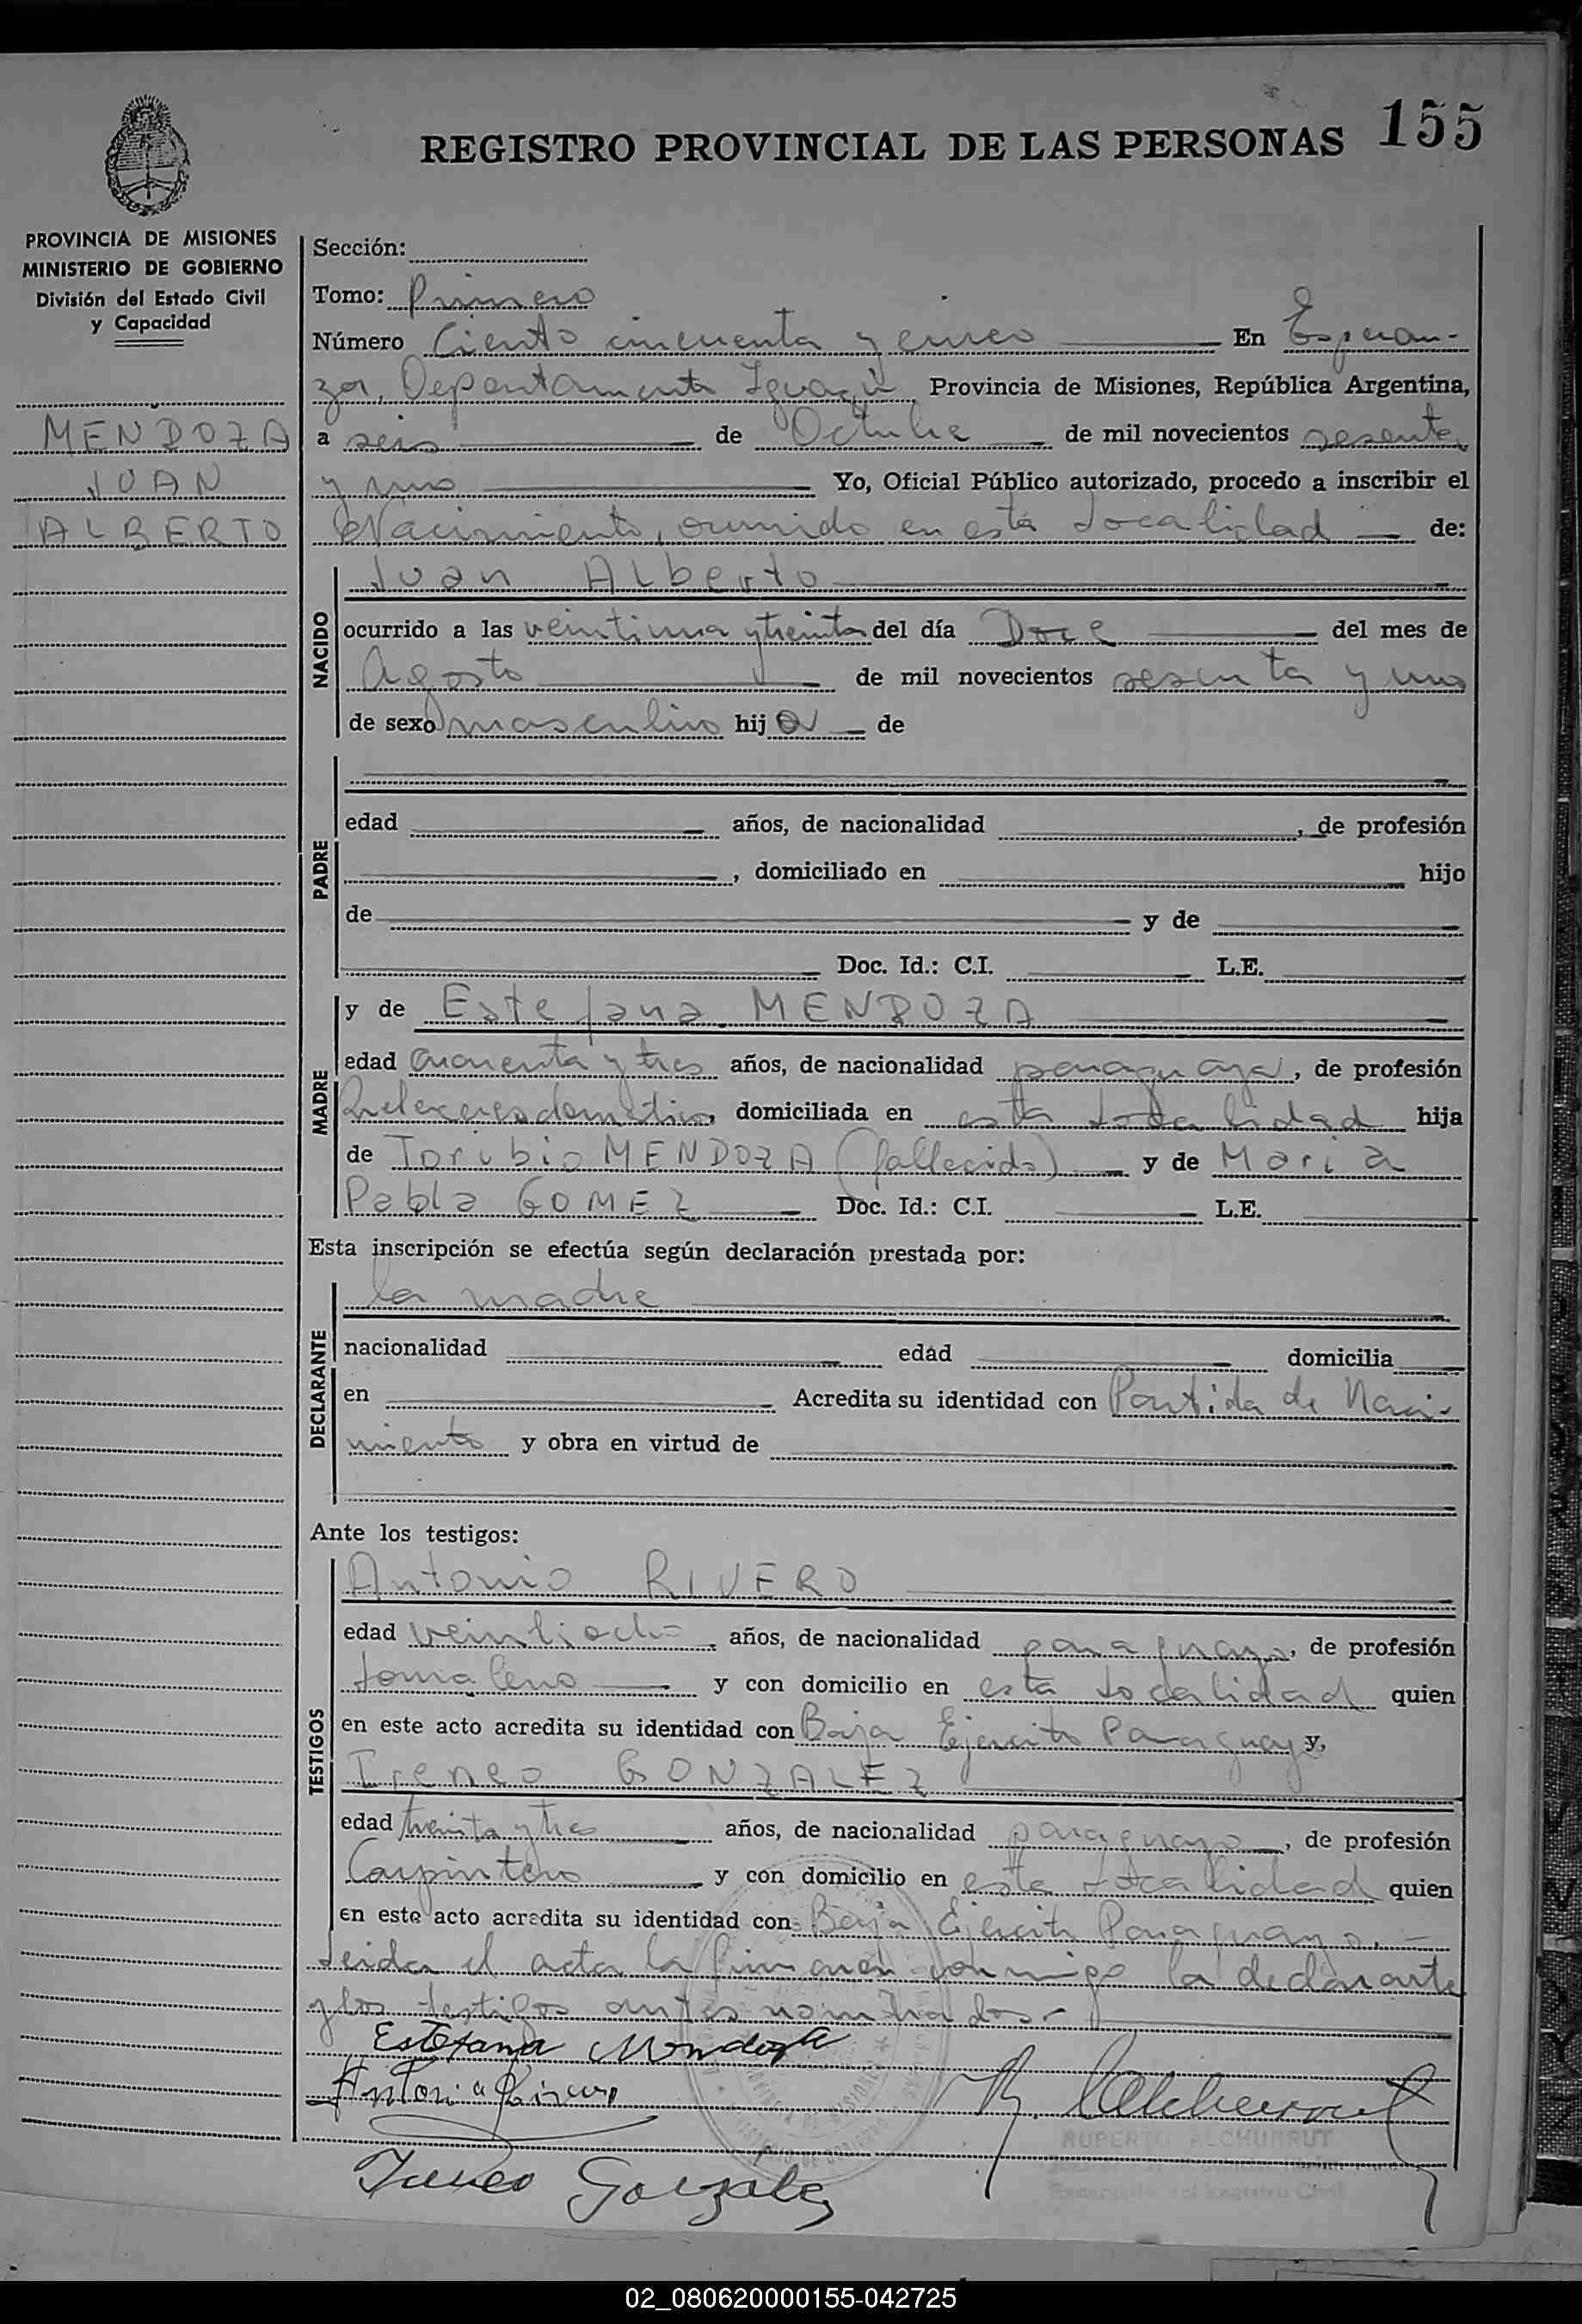 REGISTRO PROVINCIAL DE LAS PERSONAS 155
PROVINCIA DE MISIONES
MINISTERIO DE GOBIERNO
División del Estado Civil
y Capacidad
MENDOZA
JUAN
ALBERTO
Sección:
Tomo: Primero
Número Ciento cincuenta y cinco En Esperan-
za, Departamento Iguazú Provincia de Misiones, República Argentina,
a seis de Octubre de mil novecientos sesenta
y uno Yo, Oficial Público autorizado, procedo a inscribir el
Nacimiento, ocurrido en esta Localidad de:
NACIDO
Juan Alberto
ocurrido a las veintiuna y treinta del día Doce del mes de
Agosto de mil novecientos sesenta y uno
de sexo masculino hijo de
PADRE
edad años, de nacionalidad , de profesión
, domiciliado en hijo
de y de
Doc. Id.: C.I. L.E.
MADRE
y de Estefana MENDOZA
edad cuarenta y tres años, de nacionalidad paraguaya, de profesión
Quehaceres domésticos, domiciliada en esta Localidad hija
de Toribio MENDOZA (fallecido) y de Maria
Pabla GOMEZ Doc. Id.: C.I. L.E.
Esta inscripción se efectúa según declaración prestada por:
DECLARANTE
la madre
nacionalidad edad domicilia
en Acredita su identidad con Partida de Naci-
miento y obra en virtud de
Ante los testigos:
TESTIGOS
Antonio RIVERO
edad veintiocho, años, de nacionalidad paraguayo, de profesión
Jornalero y con domicilio en esta Localidad quien
en este acto acredita su identidad con Baja Ejercito Paraguay y,
Ireneo GONZALEZ
edad treinta y tres años, de nacionalidad paraguayo, de profesión
Carpintero y con domicilio en esta Localidad quien
en este acto acredita su identidad con: Baja Ejercito Paraguayo.-
Leida el acta la firman conmigo la declarante
y los testigos antes nombrados.-
Estefana Mendoza
Antonio
Ireneo Gonzalez
RUPERTO ALCHURRUT
Encargado del Registro Civil
02_080620000155-042725